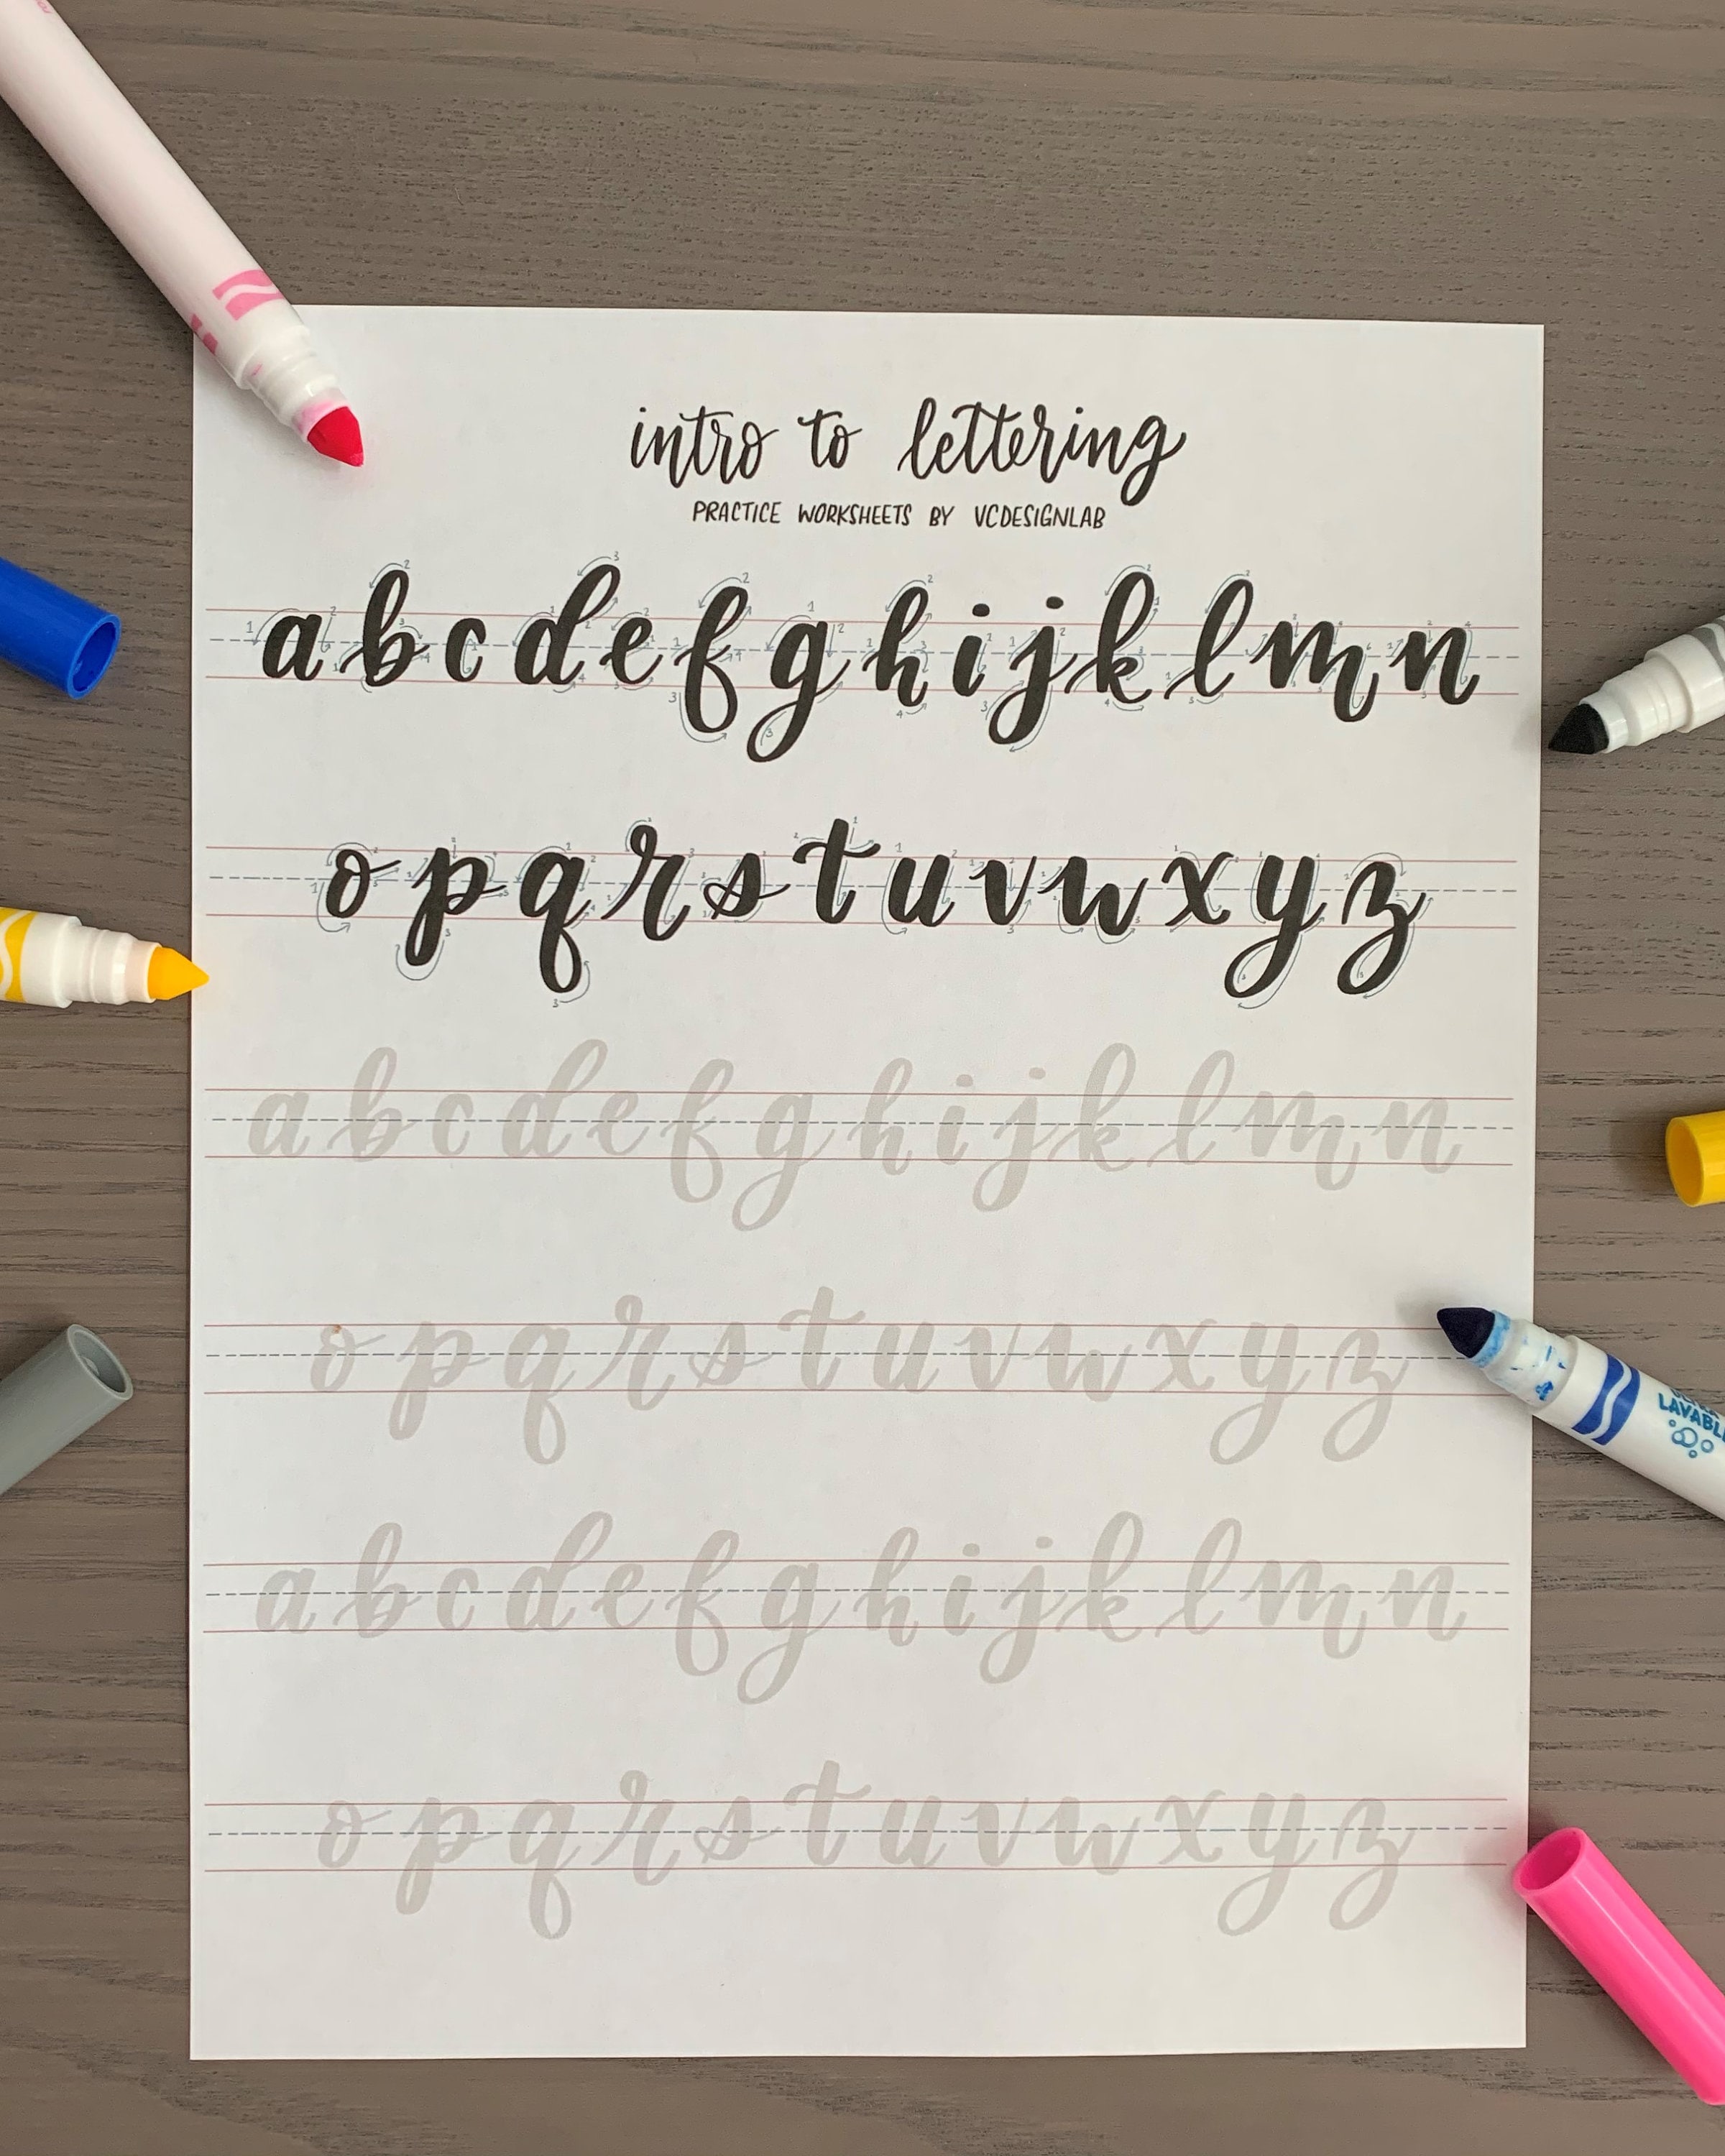 intro to lettering
PRACTICE WORKSHEETS BY VCDESIGNLAB
a b c d e f g h i j k l m n
o p q r s t u v w x y z
a b c d e f g h i j k l m n
o p q r s t u v w x y z
a b c d e f g h i j k l m n
o p q r s t u v w x y z